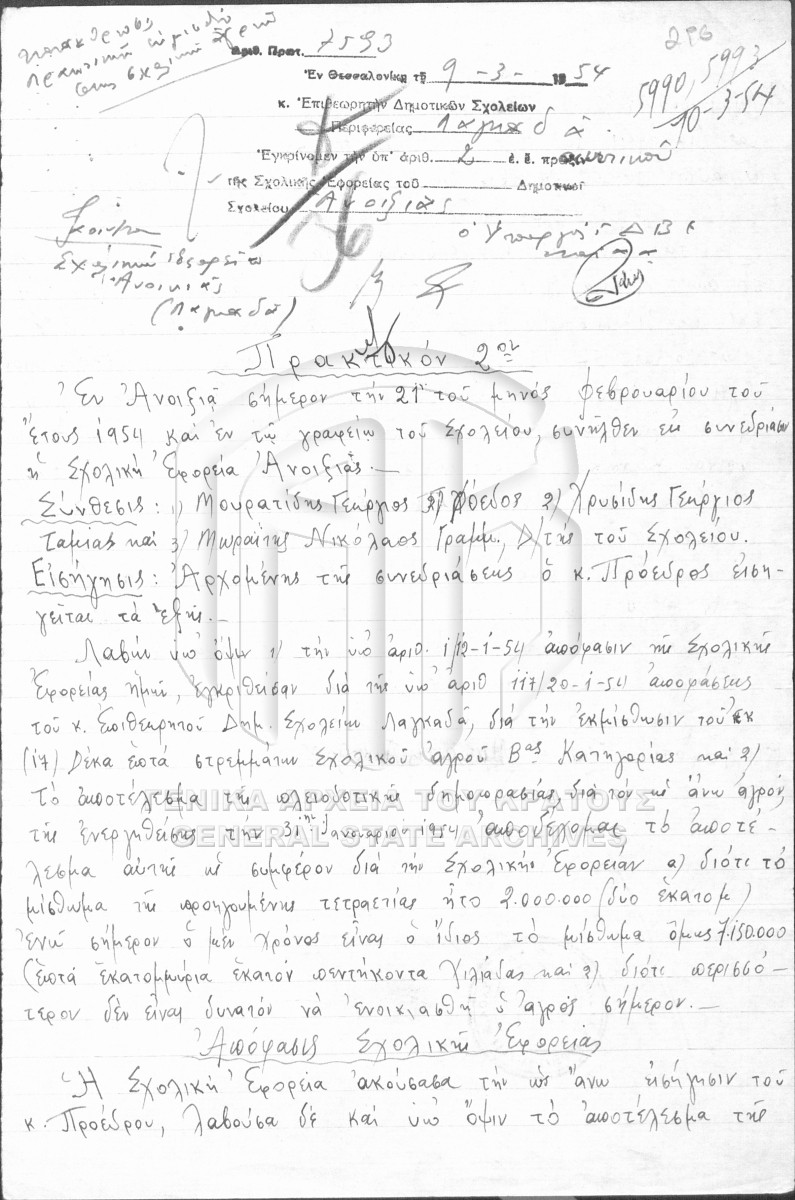 296
Αριθ. Πρωτ. 7593
Ἐν Θεσσαλονίκῃ τῇ 9-3-1954
5990, 5993
10-3-54
κ. Ἐπιθεωρητὴν Δημοτικῶν Σχολείων
Περιφερείας Λαγκαδᾶ.
Ἐγκρίνομεν τὴν ὑπ' ἀριθ. 2 ἐ. ἔ.
τῆς Σχολικῆς Ἐφορείας τοῦ Δημοτικοῦ
Σχολείου Ἀνοιξιᾶς
Σχολικὴν Ἐφορεία
Ἀνοιξιᾶς
(Λαγκαδᾶ)
Πρακτικόν 2ον
Ἐν Ἀνοιξιᾷ σήμερον τὴν 21ην τοῦ μηνός φεβρουαρίου τοῦ
ἔτους 1954 καὶ ἐν τῷ γραφείῳ τοῦ Σχολείου, συνῆλθεν εἰς συνεδρίασιν
ἡ Σχολική Ἐφορεία Ἀνοιξιᾶς.—
Σύνθεσις: 1) Μουρατίδης Γεώργιος Πρόεδος 2) Χρυσίδης Γεώργιος
ταμίας καὶ 3) Μωραΐτης Νικόλαος Γραμμ., Δ/τής τοῦ Σχολείου.
Εἰσήγησις: Ἀρχομένης τῆς συνεδριάσεως ὁ κ. Πρόεδρος εἰση-
γεῖται τά ἑξῆς.—
Λαβών ὑπ' ὄψιν 1) τὴν ὑπ' ἀριθ. 1/12-1-54 ἀπόφασιν τῆς Σχολικῆς
Ἐφορείας ἡμῶν, ἐγκριθεῖσαν διά τῆς ὑπ' ἀριθ 117/20-1-54 ἀποφάσεως
τοῦ κ. Ἐπιθεωρητοῦ Δημ. Σχολείων Λαγκαδᾶ, διά τὴν ἐκμίσθωσιν τοῦ ἐκ
(17) Δέκα ἑπτά στρεμμάτων Σχολικοῦ ἀγροῦ Βας Κατηγορίας καὶ 2)
Τὸ ἀποτέλεσμα τῆς πλειοδοτικῆς δημοπρασίας διά τον ὡς ἄνω ἀγρόν,
ΓΕΝΙΚΑ ΑΡΧΕΙΑ ΤΟΥ ΚΡΑΤΟΥΣ
τῆς ἐνεργηθείσης τὴν 31ην Ἰανουαρίου 1954 ἀποδέχομαι τὸ ἀποτέ-
GENERAL STATE ARCHIVES
λεσμα αὐτῆς ὡς συμφέρον διά τὴν Σχολικὴν Ἐφορείαν α) διότι τὸ
μίσθωμα τῆς προηγουμένης τετραετίας ἦτο 2.000.000 (δύο ἑκατομ)
ἐνῶ σήμερον ὁ μέν χρόνος εἶναι ὁ ἴδιος τὸ μίσθωμα ὅμως 7.150.000
(ἑπτά ἑκατομμύρια ἑκατόν πεντήκοντα χιλιάδας καὶ 2) διότι περισσό-
τερον δὲν εἶναι δυνατόν νὰ ἐνοικιασθῇ ὁ ἀγρός σήμερον.—
Ἀπόφασις Σχολικῆς Ἐφορείας
Ἡ Σχολική Ἐφορεία ἀκούσασα τὴν ὡς ἄνω εἰσήγησιν τοῦ
κ. Προέδρου, λαβοῦσα δέ καὶ ὑπ' ὄψιν τὸ ἀποτέλεσμα τῆς